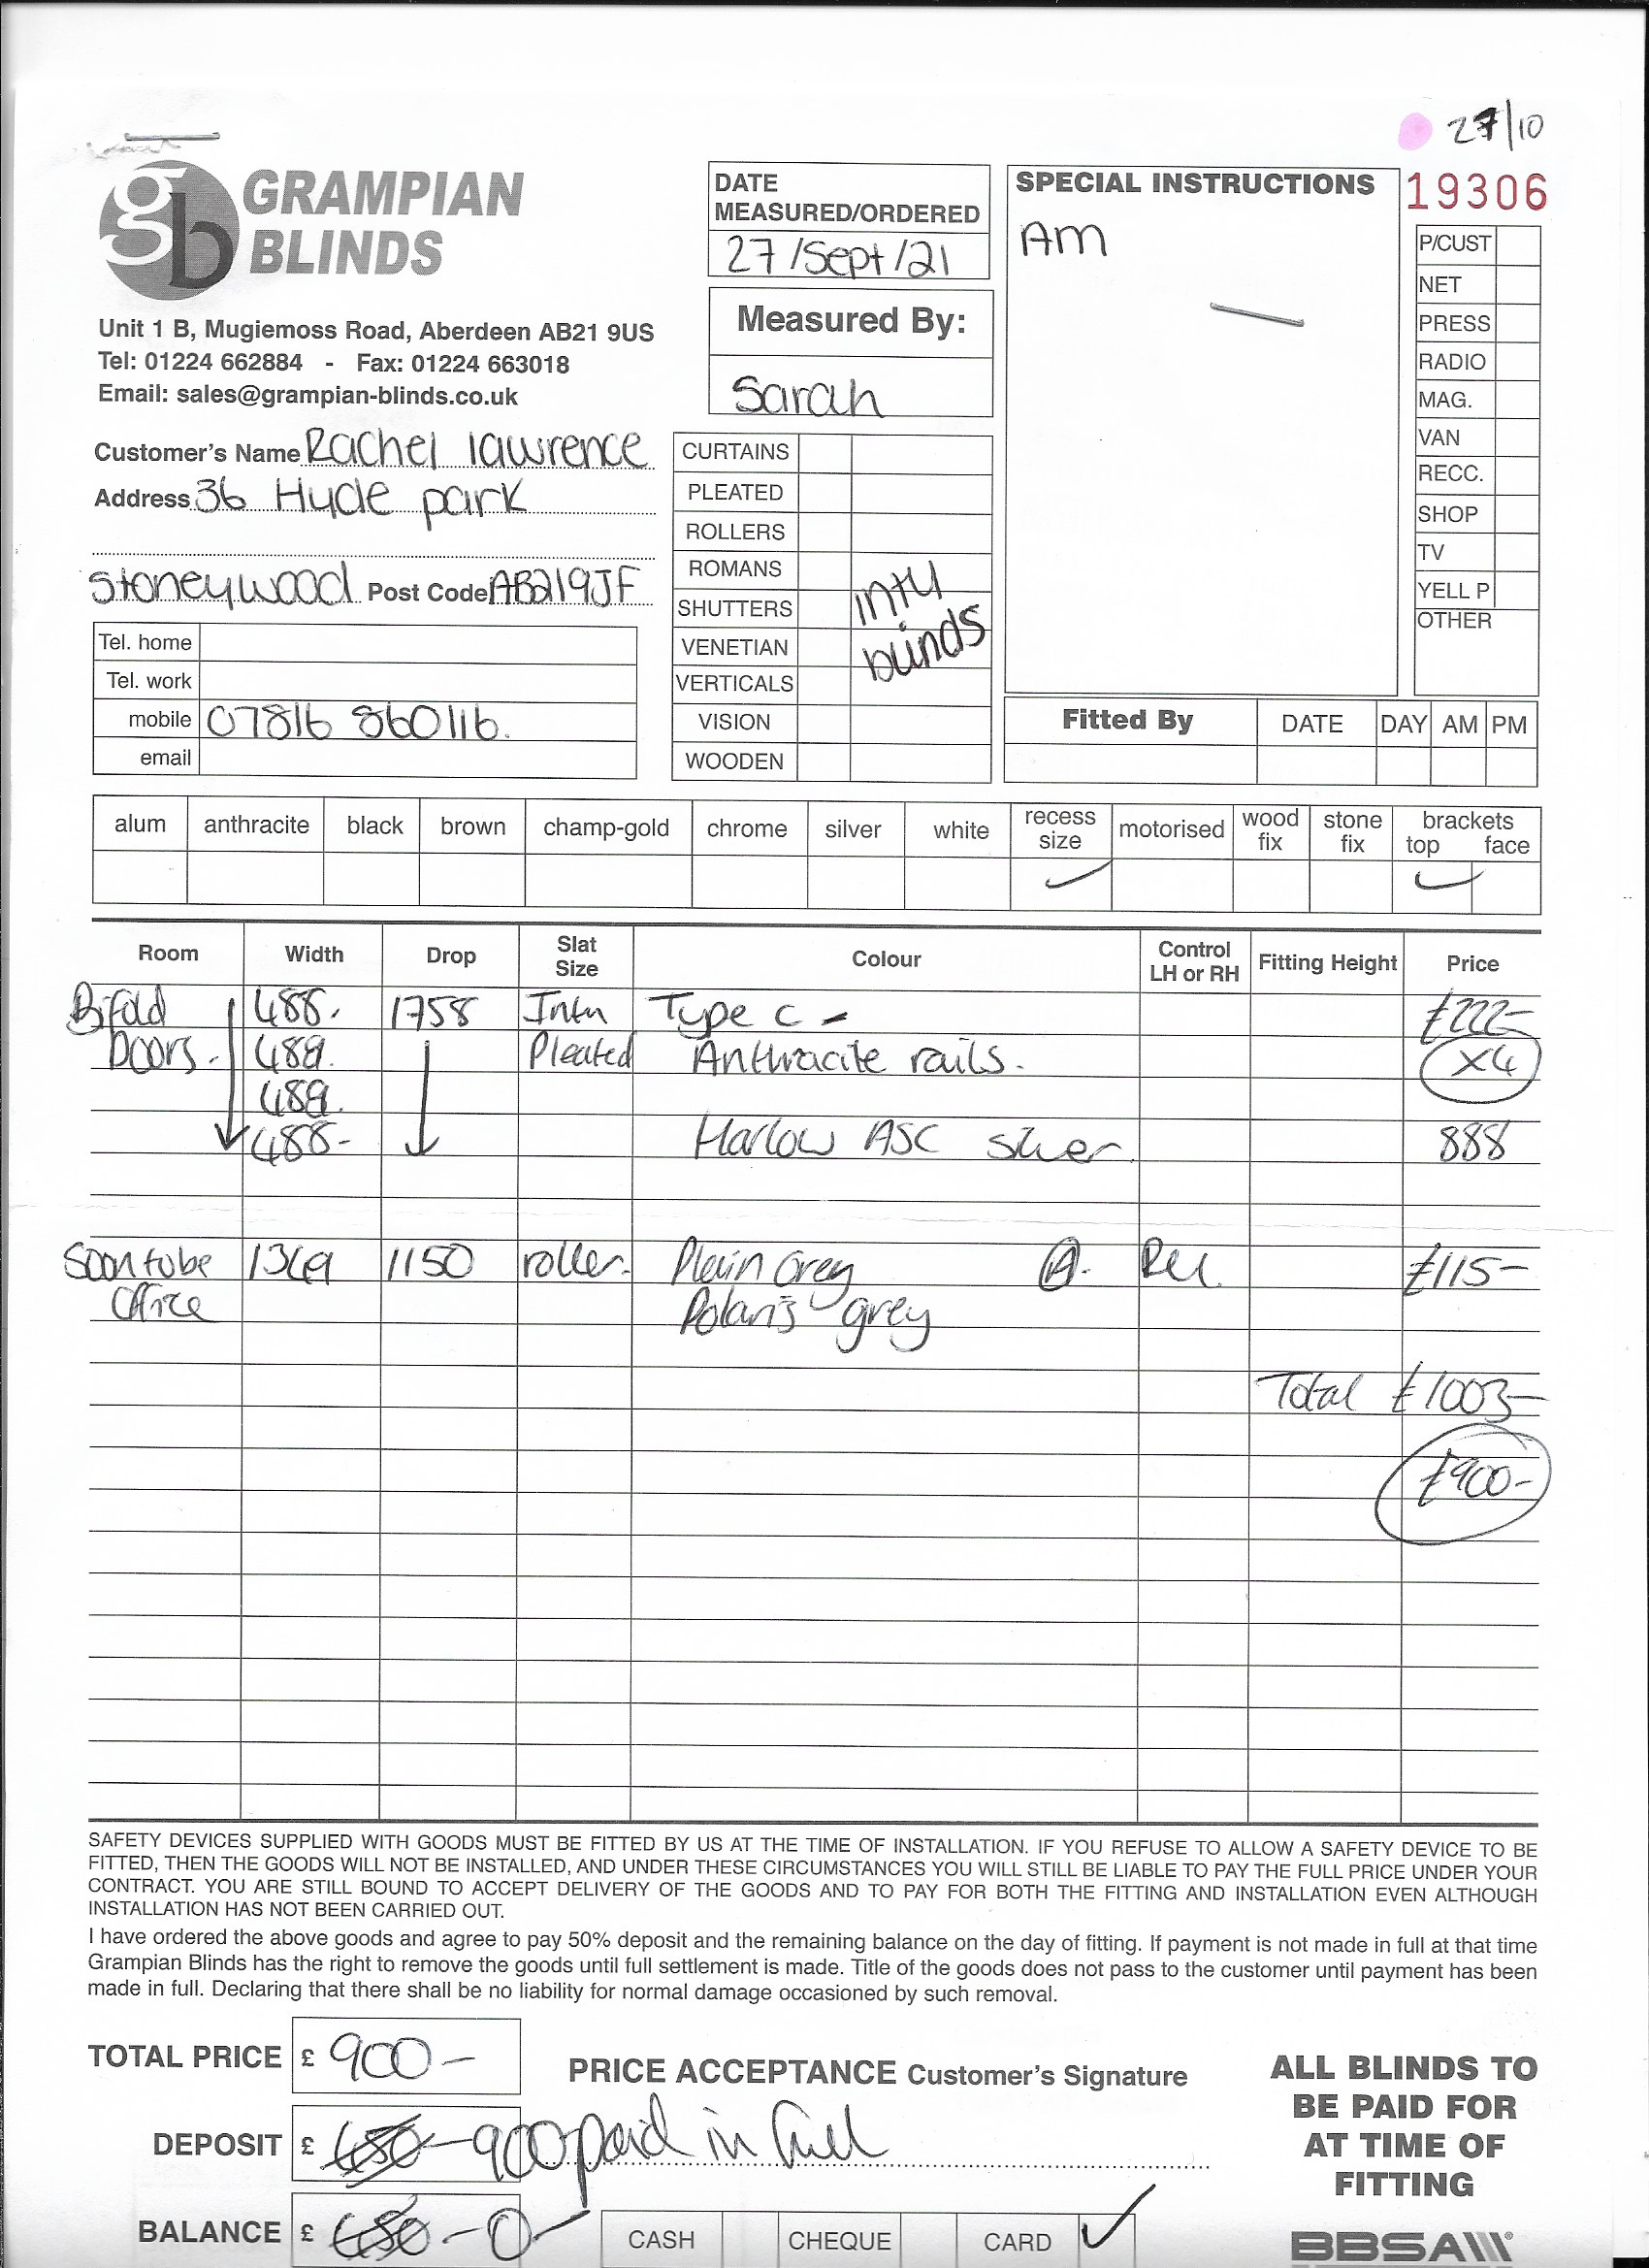 27/10
GRAMPIAN
BLINDS
Unit 1 B, Mugiemoss Road, Aberdeen AB21 9US
Tel: 01224 662884 - Fax: 01224 663018
Email: sales@grampian-blinds.co.uk
Customer's Name Rachel lawrence
Address 36 Hyde park
Stoneywood Post Code AB219JF
Tel. home
Tel. work
mobile 07816 860116.
email
DATE
MEASURED/ORDERED
27/Sept/21
Measured By:
Sarah
CURTAINS
PLEATED
ROLLERS
ROMANS
SHUTTERS
VENETIAN
VERTICALS
VISION
WOODEN
blinds
SPECIAL INSTRUCTIONS
AM
19306
P/CUST
NET
PRESS
RADIO
MAG.
VAN
RECC.
SHOP
TV
YELL P
OTHER
Fitted By DATE DAY AM PM
alum anthracite black brown champ-gold chrome silver white recess size motorised wood fix stone fix brackets top face
Room Width Drop Slat Size Colour Control LH or RH Fitting Height Price
Bifold 488. 1758 Type C - £222-
Doors. 489. Pleated Anthracite rails. x4
489.
488- Harlow ASC Silver 888
1369 1150 roller. Plain Grey A. £115-
Office Polaris grey
Total £1003-
£900-
SAFETY DEVICES SUPPLIED WITH GOODS MUST BE FITTED BY US AT THE TIME OF INSTALLATION. IF YOU REFUSE TO ALLOW A SAFETY DEVICE TO BE
FITTED, THEN THE GOODS WILL NOT BE INSTALLED, AND UNDER THESE CIRCUMSTANCES YOU WILL STILL BE LIABLE TO PAY THE FULL PRICE UNDER YOUR
CONTRACT. YOU ARE STILL BOUND TO ACCEPT DELIVERY OF THE GOODS AND TO PAY FOR BOTH THE FITTING AND INSTALLATION EVEN ALTHOUGH
INSTALLATION HAS NOT BEEN CARRIED OUT.
I have ordered the above goods and agree to pay 50% deposit and the remaining balance on the day of fitting. If payment is not made in full at that time
Grampian Blinds has the right to remove the goods until full settlement is made. Title of the goods does not pass to the customer until payment has been
made in full. Declaring that there shall be no liability for normal damage occasioned by such removal.
TOTAL PRICE £ 900-
PRICE ACCEPTANCE Customer's Signature
DEPOSIT £ 450- 900 paid in full
BALANCE £ 450-0-
CASH CHEQUE CARD ✓
ALL BLINDS TO
BE PAID FOR
AT TIME OF
FITTING
BBSA